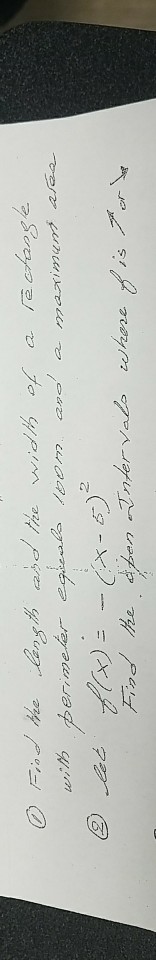 ① Find the length and the width of a rectangle
with perimeter equals 100m and a maximum area
② let f(x) = -(x-5)²
Find the open Intervals where f is ↗ or ↘